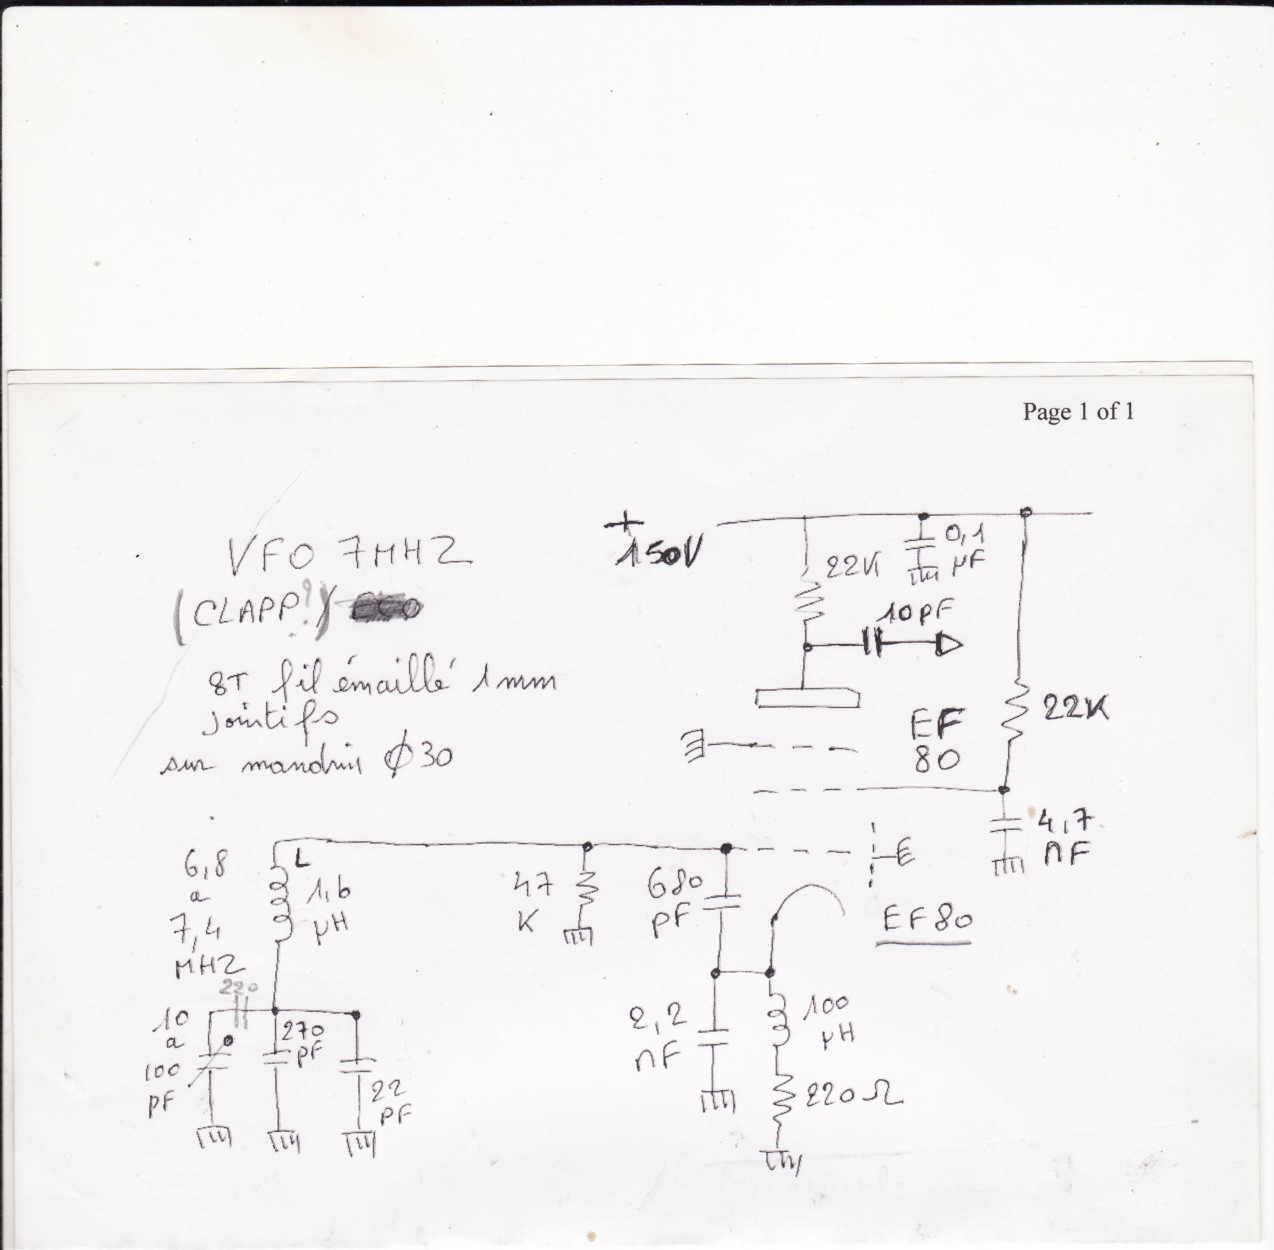 Page 1 of 1
VFO 7MHZ
(CLAPP?)
8T fil émaillé 1mm
jointifs
sur mandrin Ø30
+
150V
22K
0,1
µF
10pF
EF
80
22K
4,7
nF
6,8
a
7,4
MHZ
L
1,6
µH
47
K
680
pF
EF80
220
10
a
100
pF
270
pF
22
PF
2,2
nF
100
µH
220Ω